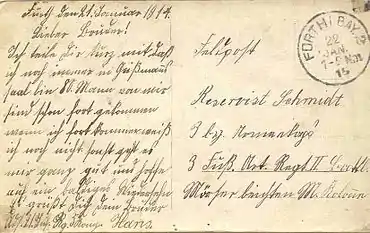 Fürth den 21. Januar 1914.
Lieber Bruder!
Ich teile Dir kurz mit daß
ich noch immer in
saal bin 80. Mann von mir
sind schon fort gekommen
wann ich fort komme weiß
ich noch nicht sonst geht es
mir ganz gut und hoffe
auf ein baldiges Wiedersehn
es grüßt Dich dein Bruder
Hans.
Feldpost
FÜRTH (BAY.) 2
22
JAN.
7-8 Nm.
15
Reservist Schmidt
3 b.
3 Fuß. Art. Regt. II. Batl.
Mörser M. Kolonn